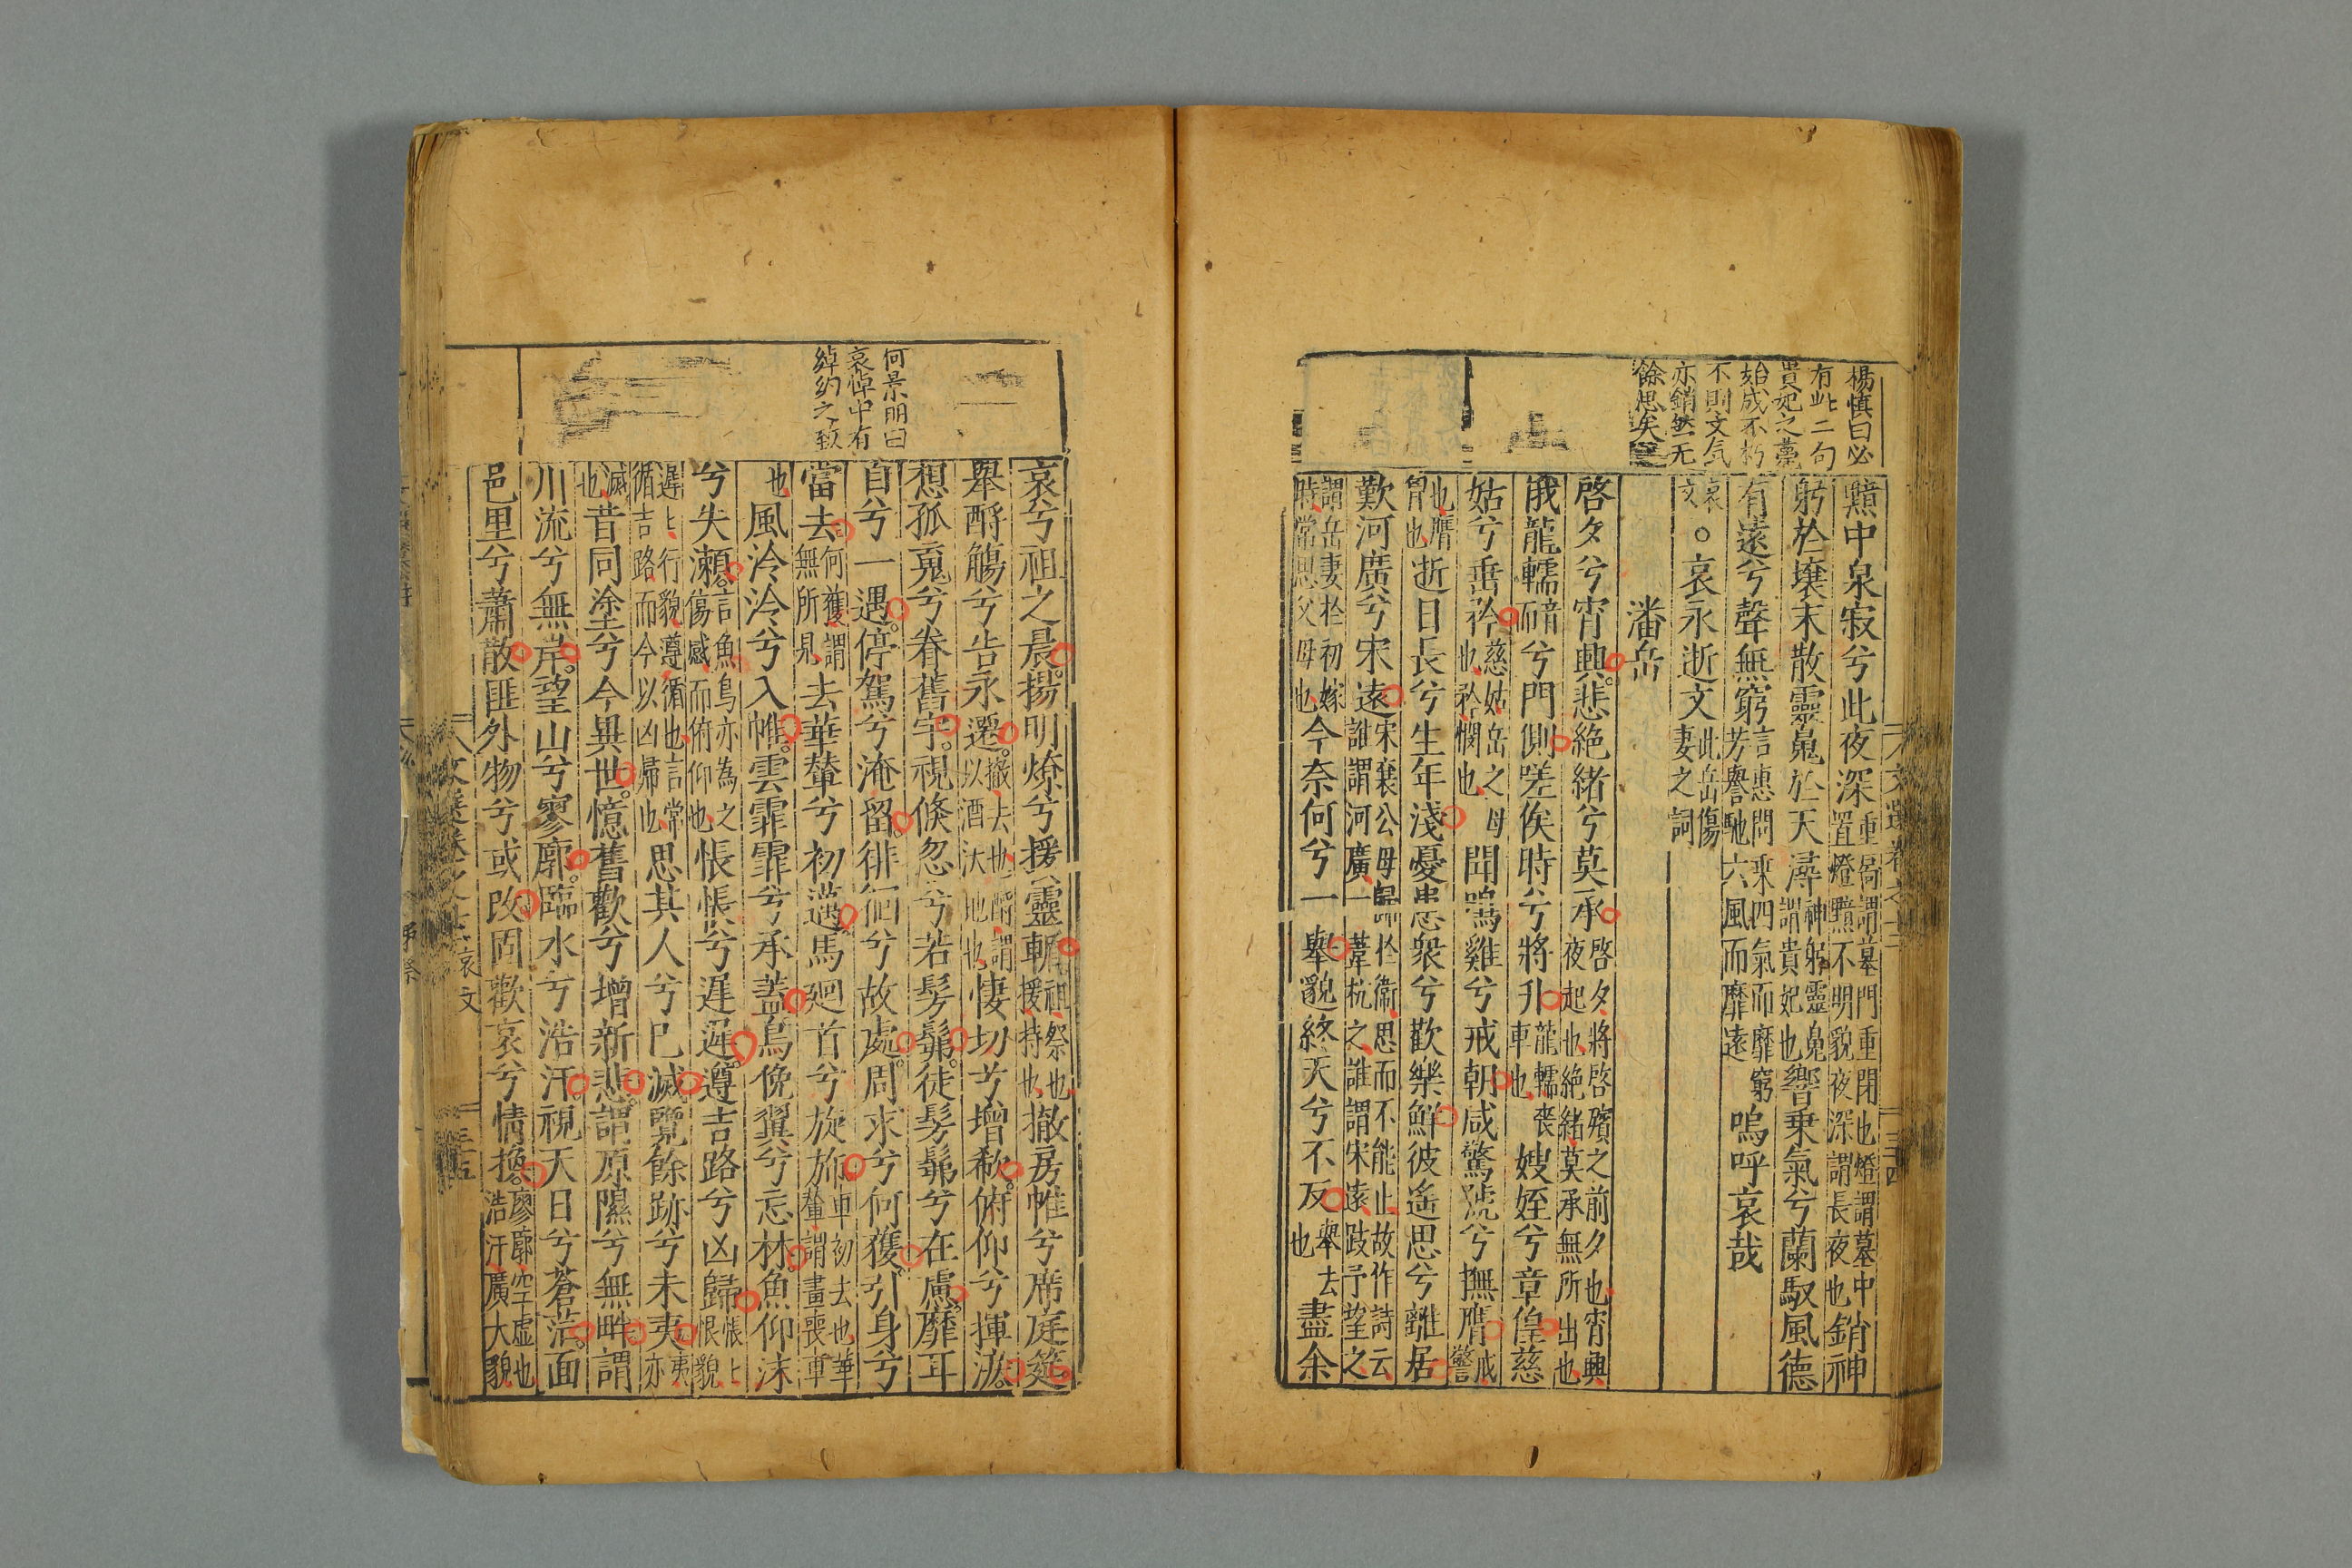 楊慎曰必
有此二句
貴妃之薨
始成不朽
不則文气
亦銷然无
餘思矣
黯中泉寂兮此夜深重扃謂墓門重閉也燈謂墓中置燈黯不明貌夜深謂長夜也銷神
躬於壤末散靈䰟於天潯神躬靈䰟謂貴妃也響乗氣兮蘭馭風德
有遠兮聲無窮言惠問乗四氣而靡窮芳譽馳六風而靡遠嗚呼哀哉
哀文○哀永逝文此岳傷妻之詞
潘岳
啓夕兮宵興悲絶緒兮莫承啓夕將啓殯之前夕也宵興夜起也絶緒莫承無所出也
俄龍轜兮門側嗟俟時兮將升龍轜喪車也嫂姪兮章偟慈
姑兮垂矜慈姑岳之母也矜憫也聞鳴雞兮戒朝咸驚號兮撫膺戒警
也膺胷也逝日長兮生年淺憂患衆兮歡樂鮮彼遥思兮離居
歎河廣兮宋遠宋襄公母歸於衞思而不能止故作詩云誰謂河廣一葦杭之誰謂宋遠跂予望之
謂岳妻於初嫁時常思父母也今奈何兮一舉邈終天兮不反舉去也盡余
文選卷之十二
三十四
何景明曰
哀悼中有
綽約之致
哀兮祖之晨揚明燎兮援靈輴祖祭也援持也撤房帷兮席庭筵
舉酹觴兮告永遷撤去也酹謂以酒沃地也悽切兮增欷俯仰兮揮淚
想孤䰟兮眷舊宇視倐忽兮若髣髴徒髣髴兮在慮靡耳
目兮一遇停駕兮淹留徘徊兮故處周求兮何獲引身兮
當去何獲謂無所見去華輦兮初邁馬廻首兮旋旆車初去也華輦謂畫喪車
也風泠泠兮入帷雲霏霏兮承蓋鳥俛翼兮忘林魚仰沫
兮失瀨言魚鳥亦為之傷感而俯仰也悵悵兮遲遲遵吉路兮凶歸悵悵恨貌
遲遲行貌遵循也言常循吉路而今以凶歸也思其人兮已滅覽餘跡兮未夷夷亦
滅也昔同塗兮今異世憶舊歡兮增新悲謂原隰兮無畔謂
川流兮無岸望山兮寥廓臨水兮浩汗視天日兮蒼茫面
邑里兮蕭散匪外物兮或改固歡哀兮情換寥廓空虛也浩汗廣大貌
文選卷之十二
哀文
三十五